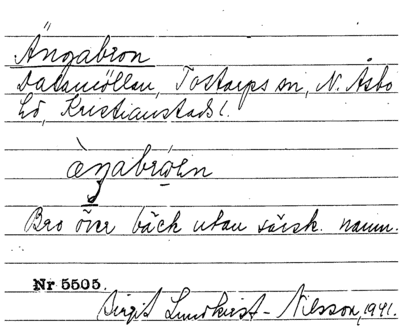 Ängabron
Dalamöllan, Tostarps sn, N. Åsbo
hd, Kristianstads l.
àŋabrọen
Bro över bäck utan särsk. namn.
Nr 5505.
Birgit Lundkvist-Nilsson, 1941.